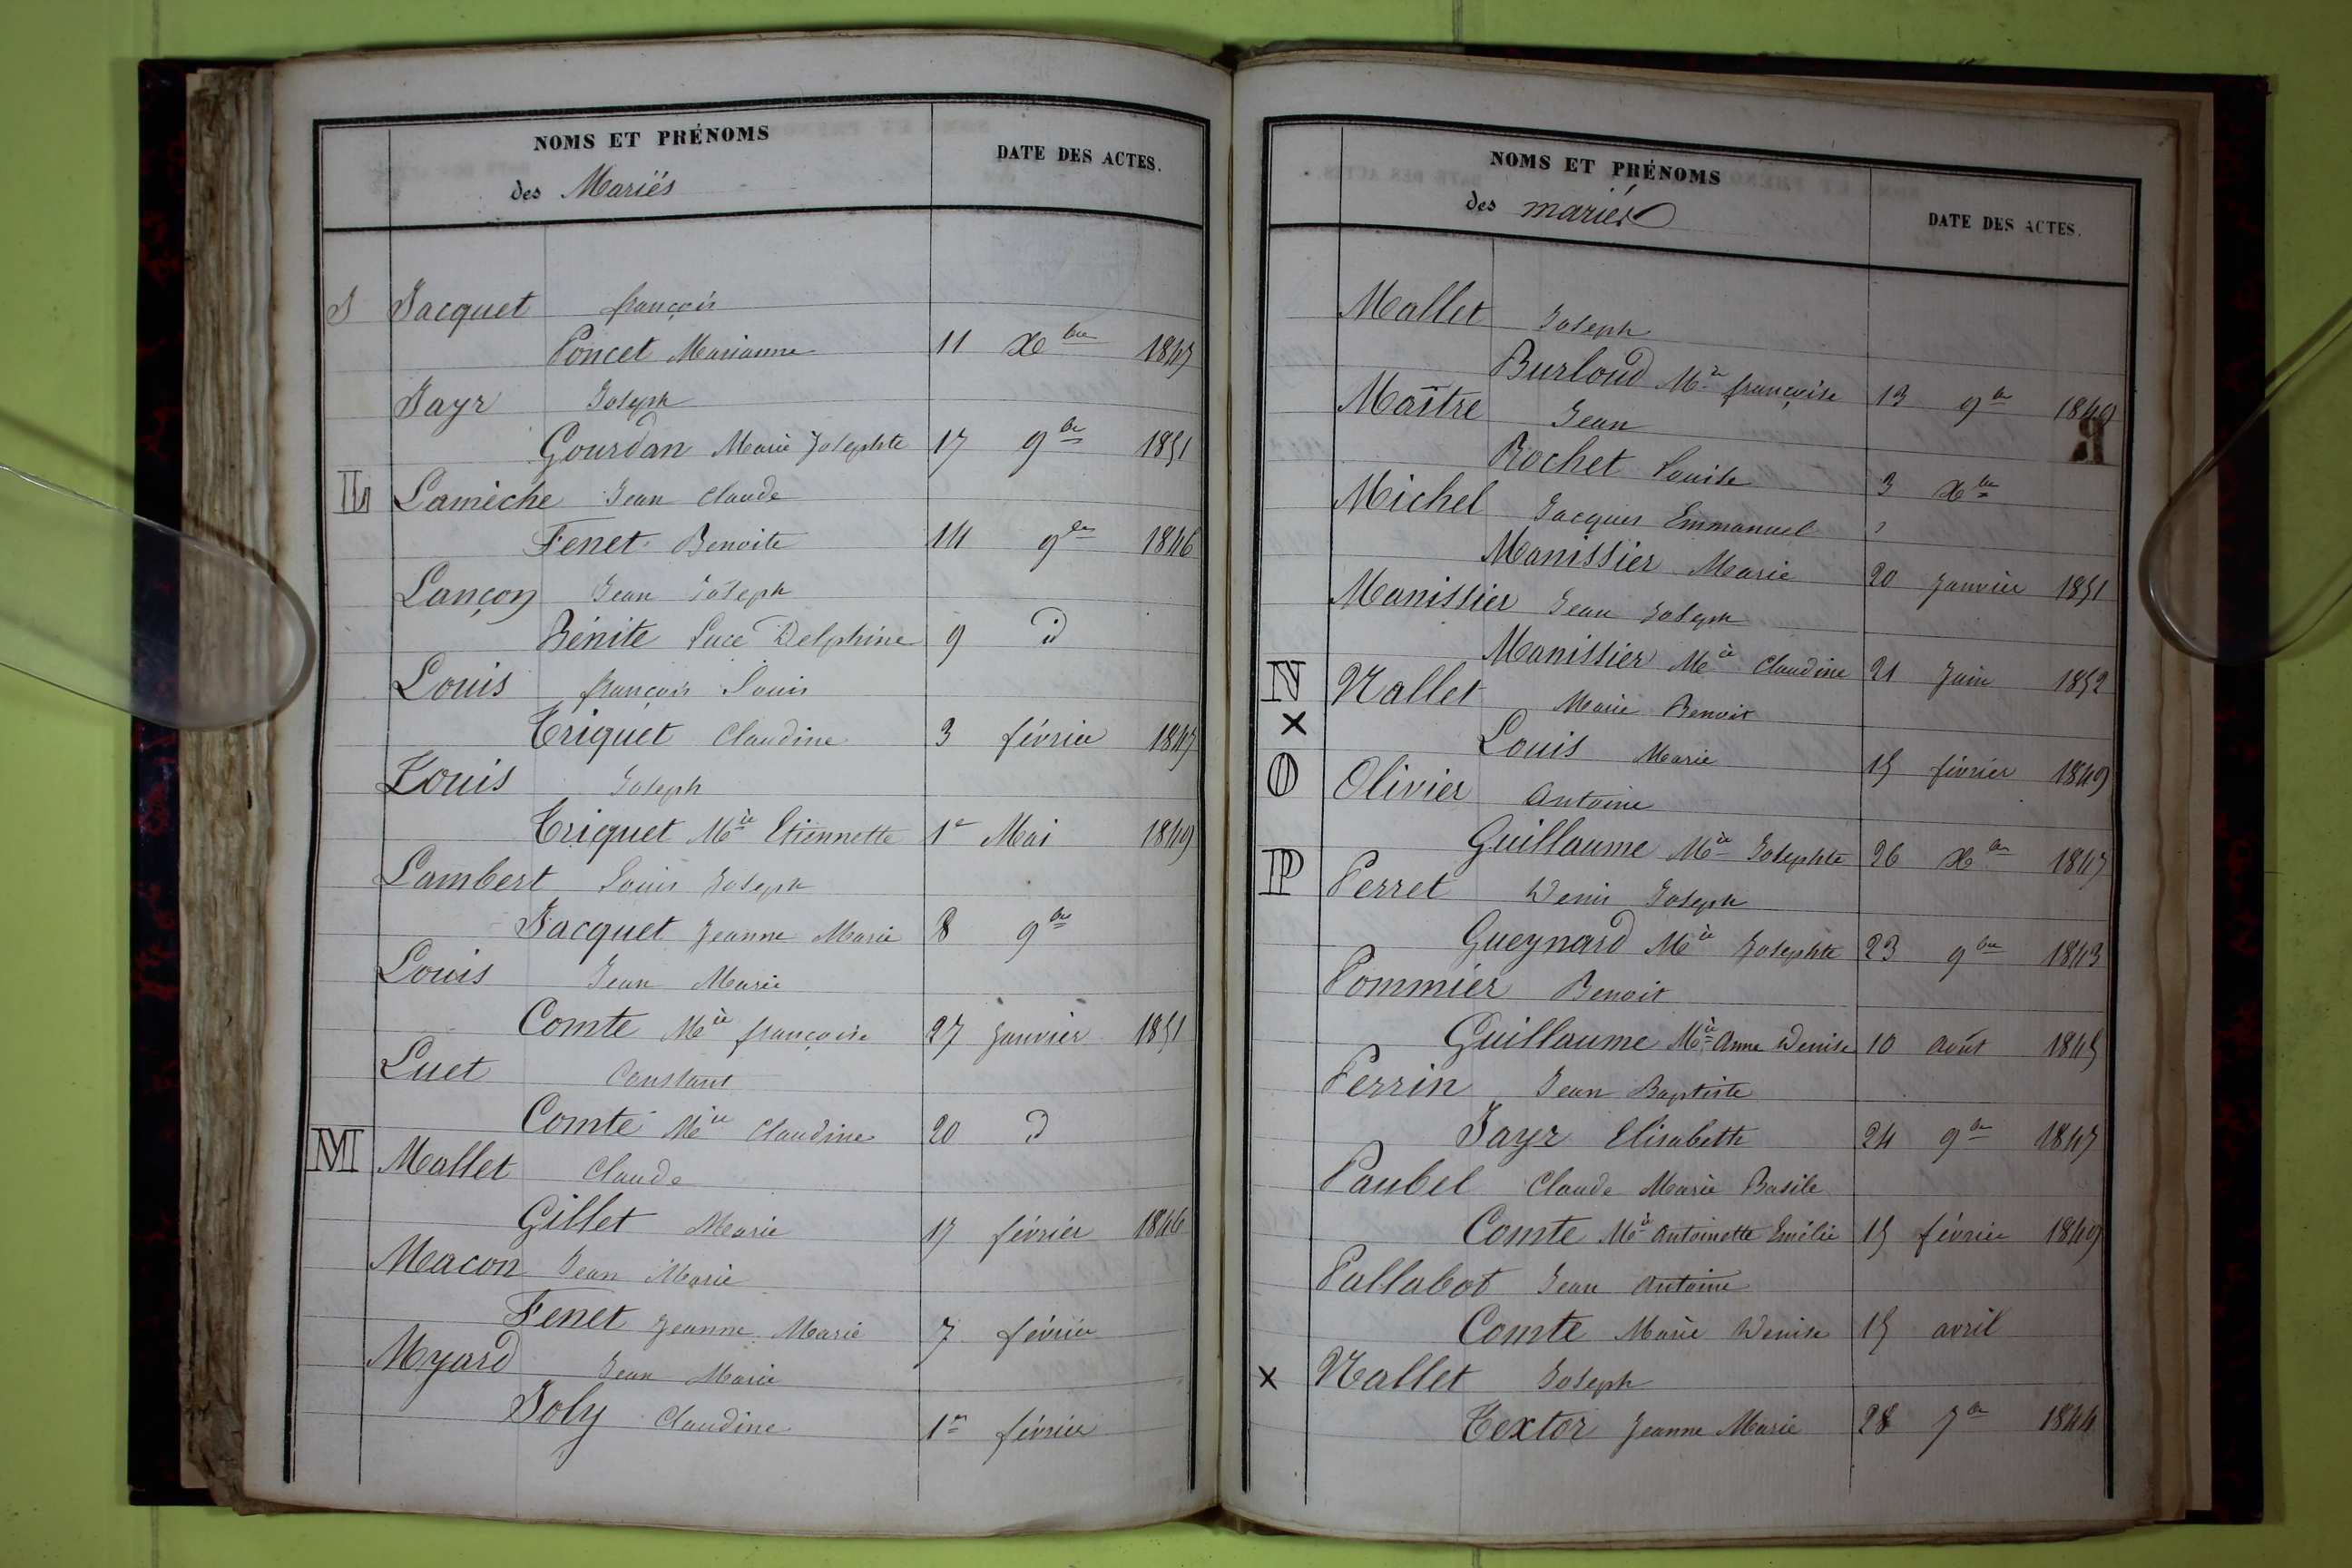 NOMS ET PRÉNOMS
des Mariés
DATE DES ACTES.
J Jacquet françois
Poncet Marianne 11 Xbre 1847
Jayr Joseph
Gourdan Marie Josephte 17 9bre 1851
L Lamèche Jean Claude
Fenet Benoite 14 9bre 1846
Lançon Jean Joseph
Bénite Luce Delphine 9 id
Louis françois Louis
Triquet Claudine 3 février 1847
Louis Joseph
Triquet Mie Etiennette 1er Mai 1849
Lambert Louis Joseph
Jacquet Jeanne Marie 8 9bre
Louis Jean Marie
Comte Mie françoise 27 Janvier 1851
Luet Constant
Comte Mie Claudine 20 d
M Mallet Claude
Gillet Marie 17 février 1846
Macon Jean Marie
Fenet Jeanne Marie 7 février
Myard Jean Marie
Joly Claudine 1er février
NOMS ET PRÉNOMS
des mariés
DATE DES ACTES.
Mallet Joseph
Burloud Mie françoise 13 9bre 1849
Maître Jean
Rochet Louise 3 Xbre
Michel Jacques Emmanuel
Manissier Marie 20 Janvier 1851
Manissier Jean Joseph
Manissier Mie Claudine 21 Juin 1852
N Nallet Marie Benoit
X Louis Marie 15 février 1849
O Olivier Antoine
Guillaume Mie Josephte 26 Xbre 1847
P Perret Denis Joseph
Gueynard Mie Josephte 23 9bre 1843
Pommier Benoit
Guillaume Mie Anne Denise 10 août 1845
Perrin Jean Baptiste
Jayr Elisabeth 24 9bre 1847
Paubel Claude Marie Basile
Comte Mie Antoinette Emélie 15 février 1849
Pallabot Jean Antoine
Comte Marie Denise 15 avril
X Nallet Joseph
Textor Jeanne Marie 28 7bre 1844